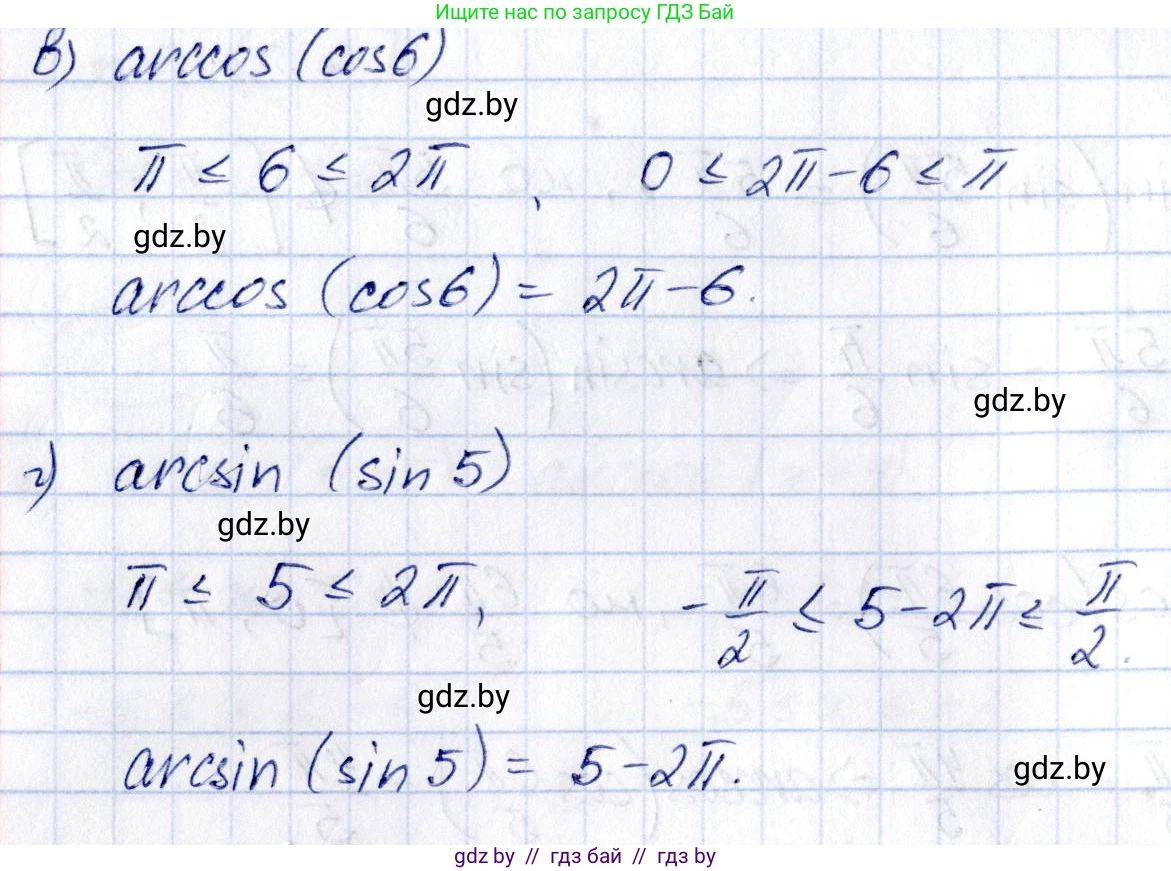 Ищите нас по запросу ГДЗ Бай
в) arccos (cos6)
gdz.by
π ≤ 6 ≤ 2π , 0 ≤ 2π-6 ≤ π
gdz.by
arccos (cos6) = 2π-6.
gdz.by
г) arcsin (sin 5)
gdz.by
π ≤ 5 ≤ 2π, -π/2 ≤ 5-2π ≤ π/2.
gdz.by
arcsin (sin 5) = 5-2π.
gdz.by
gdz by // гдз бай // гдз by